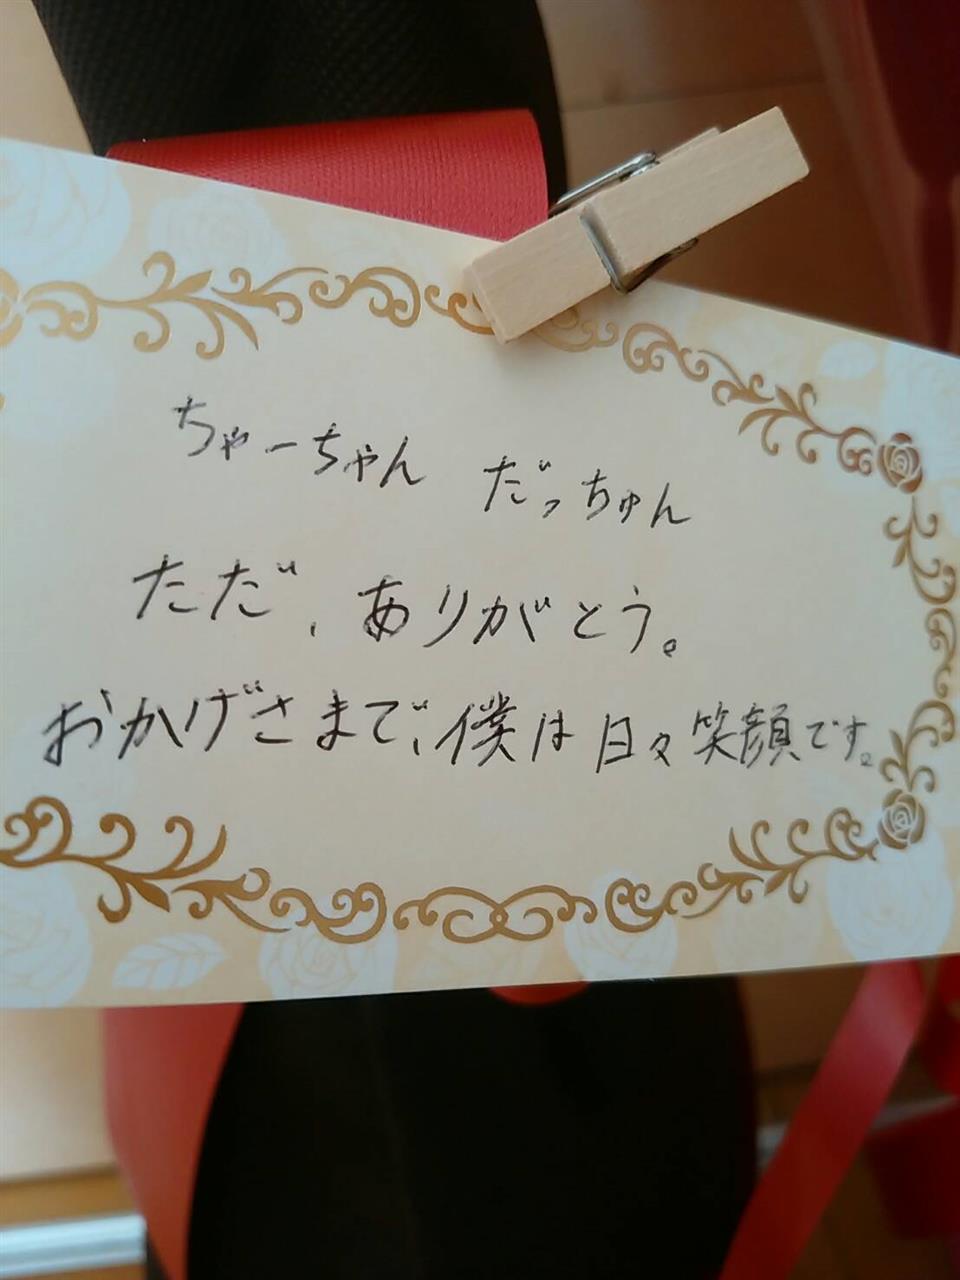 ちゃーちゃん だっちゅん
ただ、ありがとう。
おかげさまで、僕は日々笑顔です。